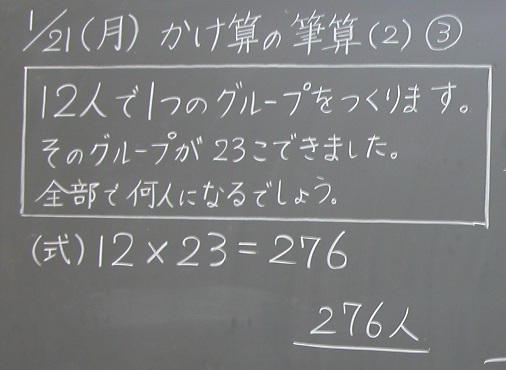 1/21(月) かけ算の筆算(2) ③
12人で1つのグループをつくります。
そのグループが23こできました。
全部で何人になるでしょう。
(式)12×23=276
276人